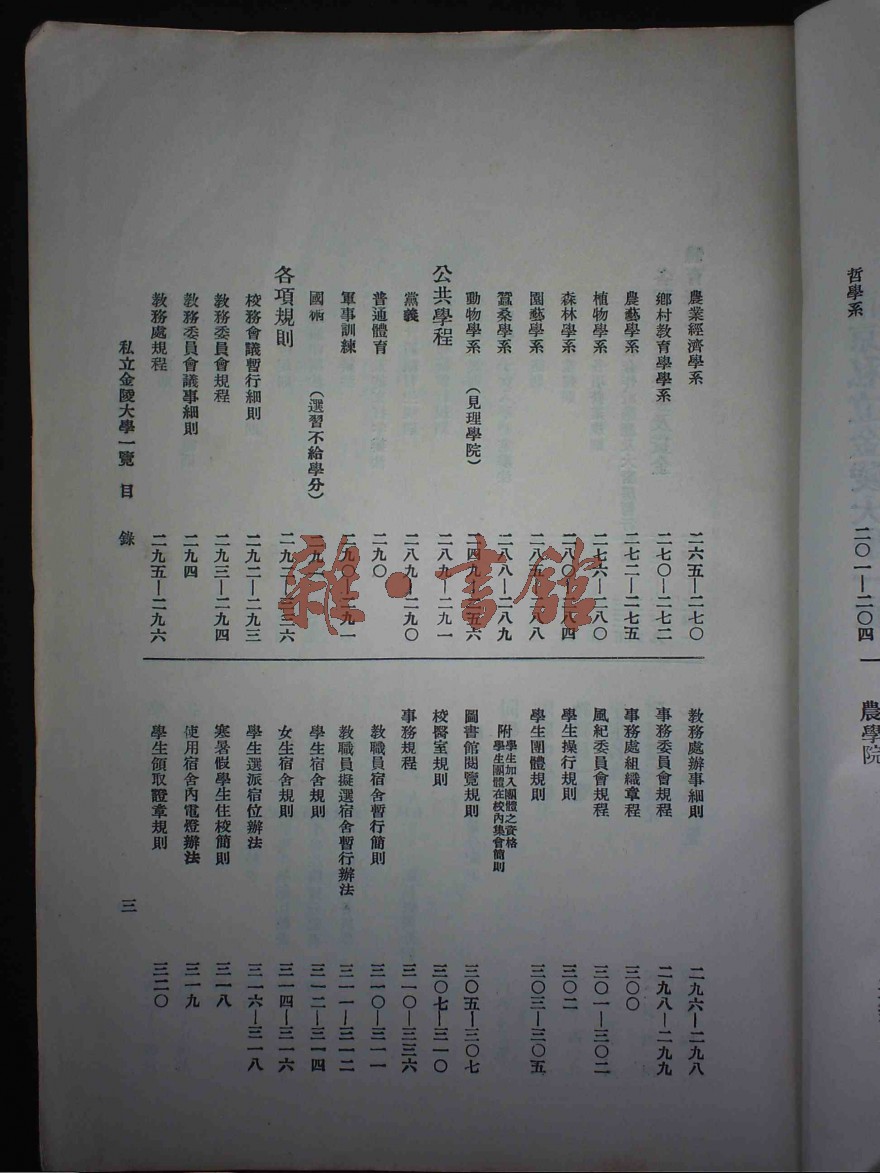 農業經濟學系 二六五—二七〇
鄉村教育學系 二七〇—二七二
農藝學系 二七二—二七五
植物學系 二七六—二八〇
森林學系 二八〇—二八四
園藝學系 二八五—二八八
蠶桑學系 二八八—二八九
動物學系 (見理學院) 二四九—二五六
公共學程 二八九—二九一
黨義 二八九—二九〇
普通體育 二九〇
軍事訓練 二九〇—二九一
國術 (選習不給學分) 二九一
各項規則 二九二—三三六
校務會議暫行細則 二九二—二九三
教務委員會規程 二九三—二九四
教務委員會議事細則 二九四
教務處規程 二九五—二九六
教務處辦事細則 二九六—二九八
事務委員會規程 二九八—二九九
事務處組織章程 三〇〇
風紀委員會規程 三〇一—三〇二
學生操行規則 三〇二
學生團體規則 三〇三—三〇五
附 學生加入團體之資格
學生團體在校內集會簡則
圖書館閱覽規則 三〇五—三〇七
校醫室規則 三〇七—三一〇
事務規程 三一〇—三三六
教職員宿舍暫行簡則 三一〇—三一一
教職員擬選宿舍暫行辦法 三一一—三一二
學生宿舍規則 三一二—三一四
女生宿舍規則 三一四—三一六
學生選派宿位辦法 三一六—三一八
寒暑假學生住校簡則 三一八
使用宿舍內電燈辦法 三一九
學生領取證章規則 三二〇
私立金陵大學一覽 目錄 三
哲學系 二〇一—二〇四
農學院
雜·書館